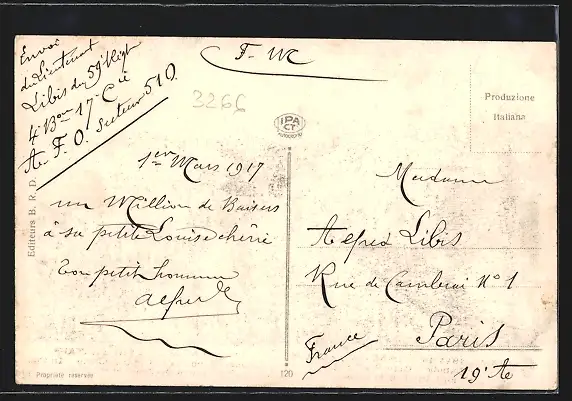 Envoi
du Lieutenant
Libis du 59e Regt
4e Bon 17e Cie
A. F. O. Secteur 510
F. M
3266
Produzione
Italiana
IPA
CT
1er Mars 1917
un Million de Baisers
à sa petite Louise chérie
Ton petit homme
Alfred
Madame
Alfred Libis
Rue de Cambrai No 1
Paris
19e Ar
France
Editeurs B. R. D.
Propriété réservée
120